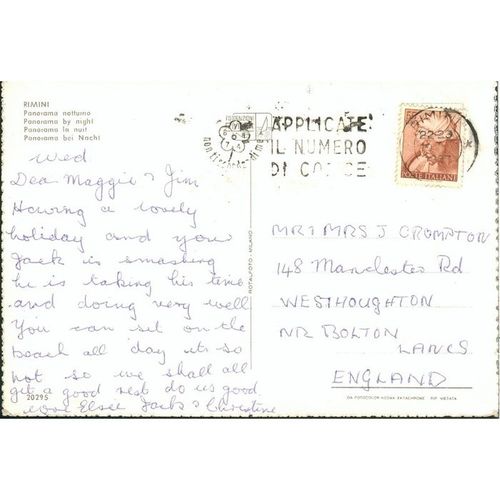 RIMINI
Panorama notturno
Panorama by night
Panorama la nuit
Panorama bei Nacht
Wed
Dear Maggie & Jim
Having a lovely
holiday and you
Jack is smashing
he is taking his time
and doing very well
You can sit on the
beach all day its so
hot so we shall all
get a good rest do us good
love Elsie Jack & Christine
20295
ROTALFOTO - MILANO
APPLICATE
IL NUMERO
DI CODICE
RIMINI
22-23
POSTE ITALIANE
MR & MRS J CROMPTON
148 Manchester Rd
WESTHOUGHTON
NR BOLTON
LANCS
ENGLAND